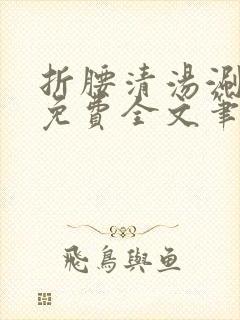 折腰清汤涮
免費全文筆
飛鳥與鱼